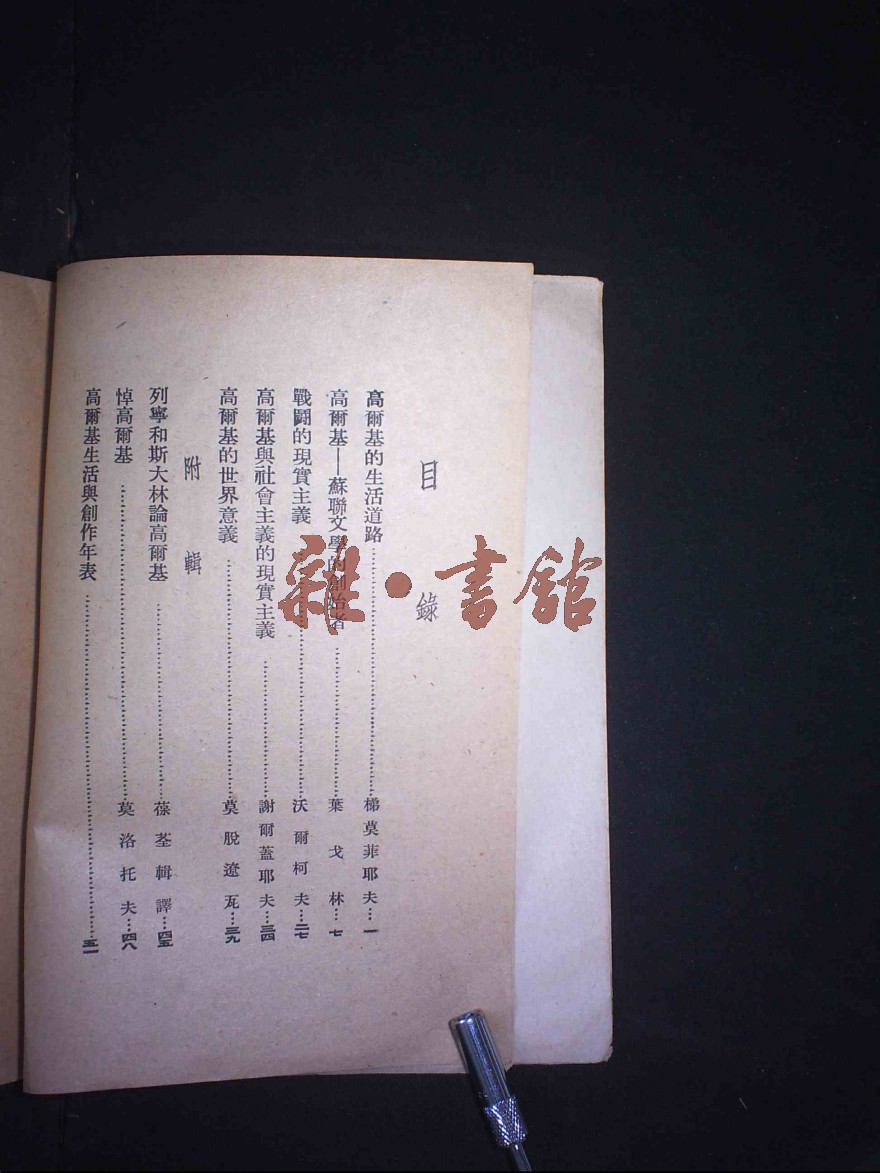 目錄
高爾基的生活道路……梯莫菲耶夫…一
高爾基——蘇聯文學的創始者……葉戈林…七
戰鬪的現實主義……沃爾柯夫…二七
高爾基與社會主義的現實主義……謝爾蓋耶夫…三四
高爾基的世界意義……莫脫遼瓦…三九
附輯
列寧和斯大林論高爾基……葆荃輯譯…四五
悼高爾基……莫洛托夫…四八
高爾基生活與創作年表……五一
雜·書館